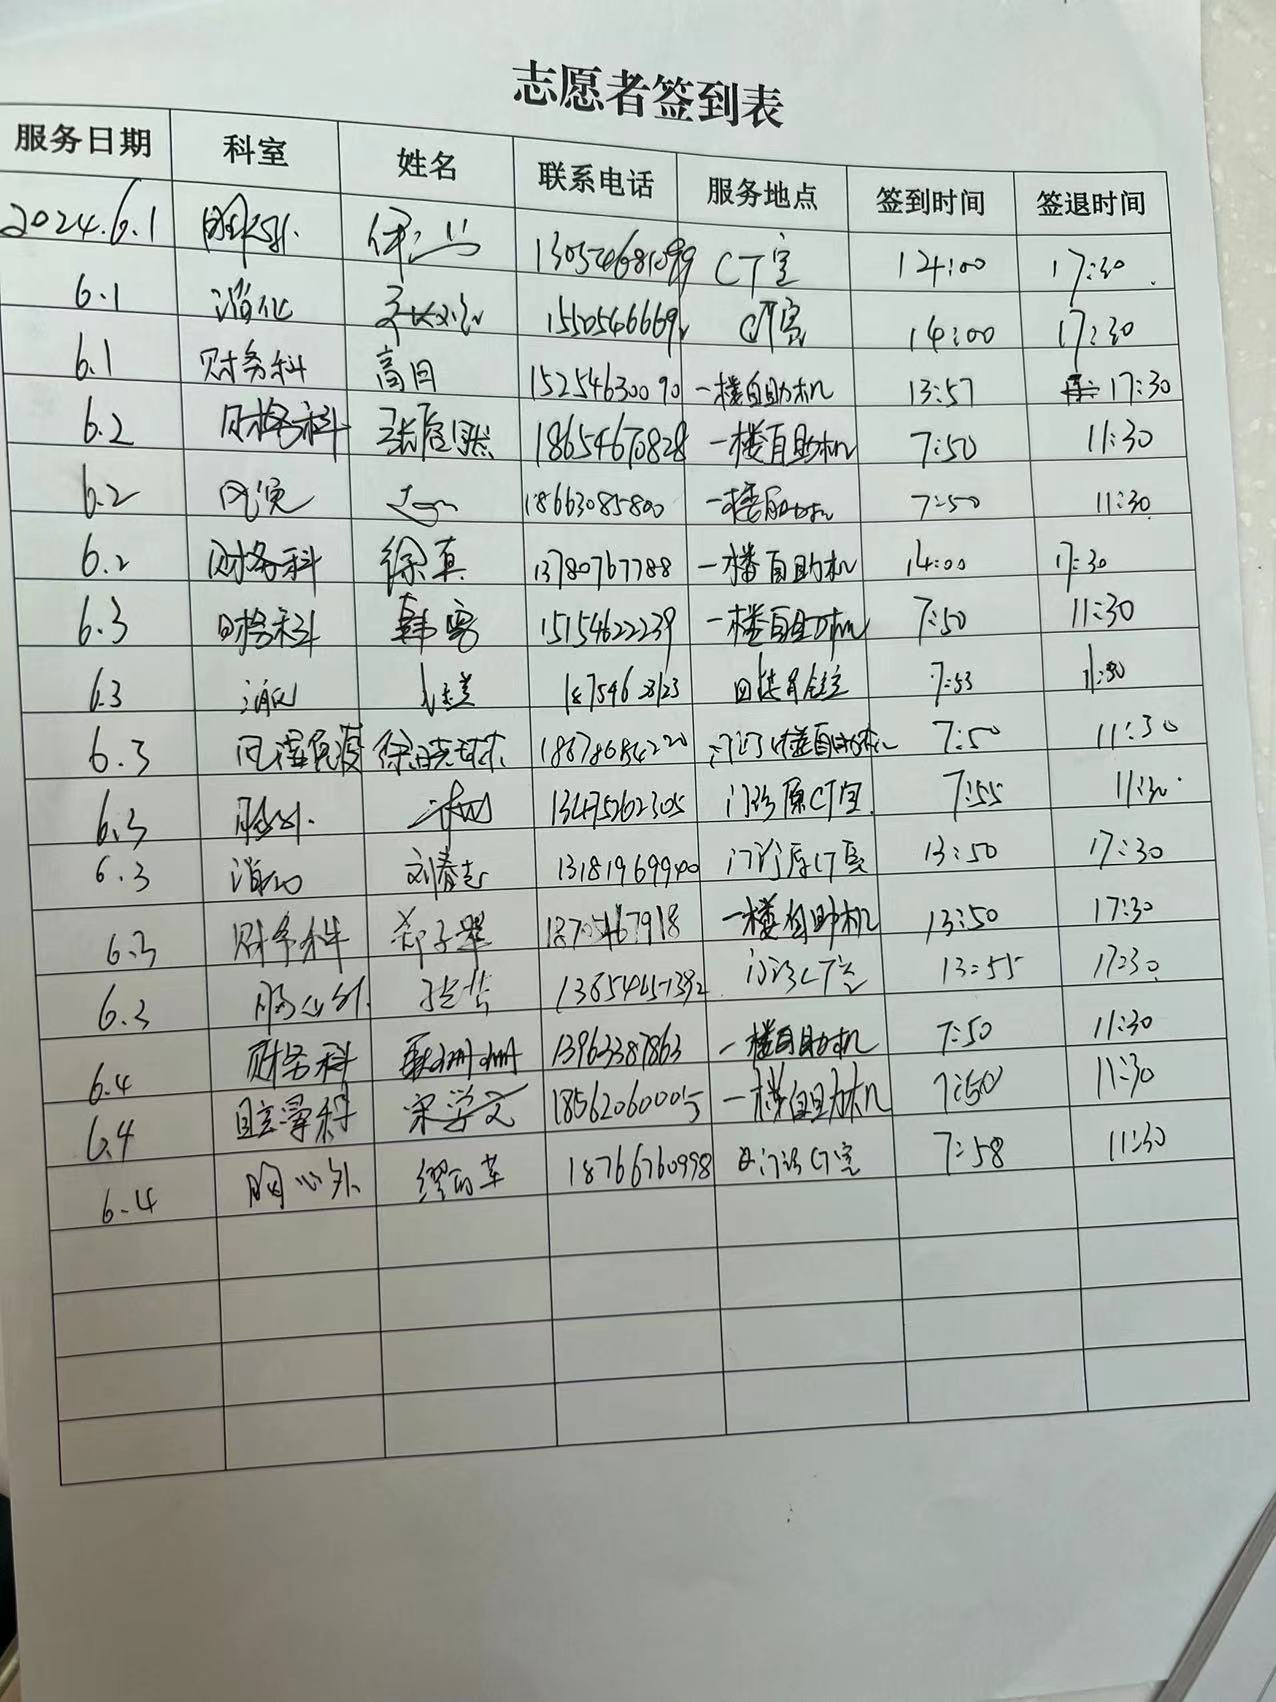 志愿者签到表
服务日期 科室 姓名 联系电话 服务地点 签到时间 签退时间
2024.6.1 CT室 14:00 17:30
6.1 消化 CT室 14:00 17:30
6.1 财务科 高回 15254630090 一楼自助机 13:57 17:30
6.2 财务科 18654670828 一楼自助机 7:50 11:30
6.2 风湿 18663085800 一楼自助机 7:50 11:30
6.2 财务科 徐真 13780767788 一楼自助机 14:00 17:30
6.3 财务科 韩 15154622239 一楼自助机 7:50 11:30
6.3 消化 7:53 11:30
6.3 风湿免疫 徐晓 18678684220 门诊一楼自助机 7:50 11:30
6.3 胸外 13475202305 门诊原CT室 7:55 11:30
6.3 消化 刘春志 13181969940 门诊原CT室 13:50 17:30
6.3 财务科 18705467918 一楼自助机 13:50 17:30
6.3 胸心外 门诊CT室 13:55 17:30
6.4 财务科 13963387863 一楼自助机 7:50 11:30
6.4 宋学文 18562060005 一楼自助机 7:50 11:30
6.4 胸心外 18766760998 门诊CT室 7:58 11:30